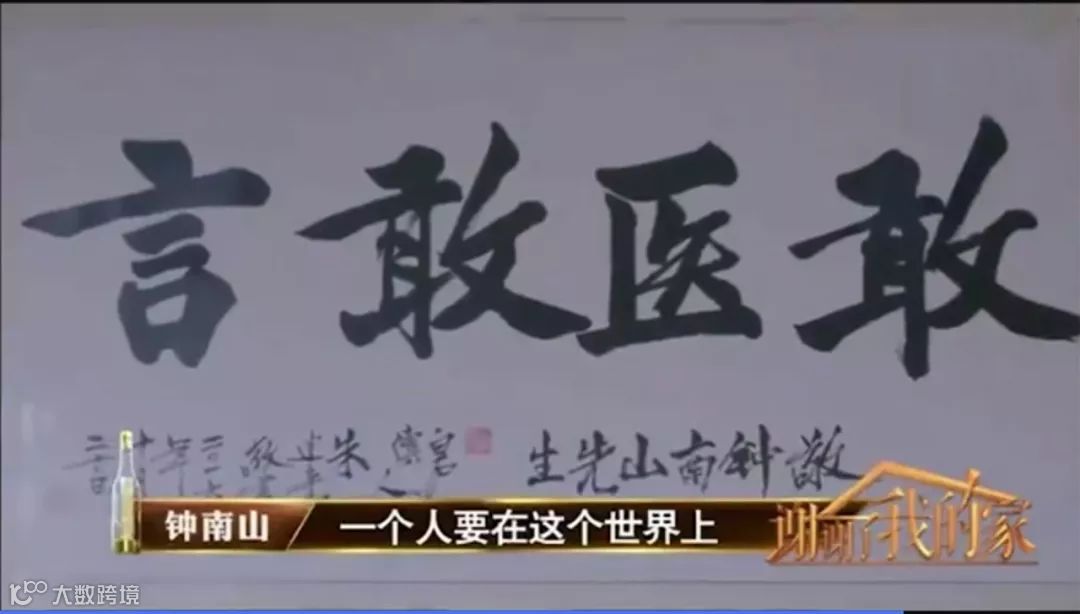 敢医敢言
敬钟南山先生
钟南山
一个人要在这个世界上
谢谢了我的家
大数跨境